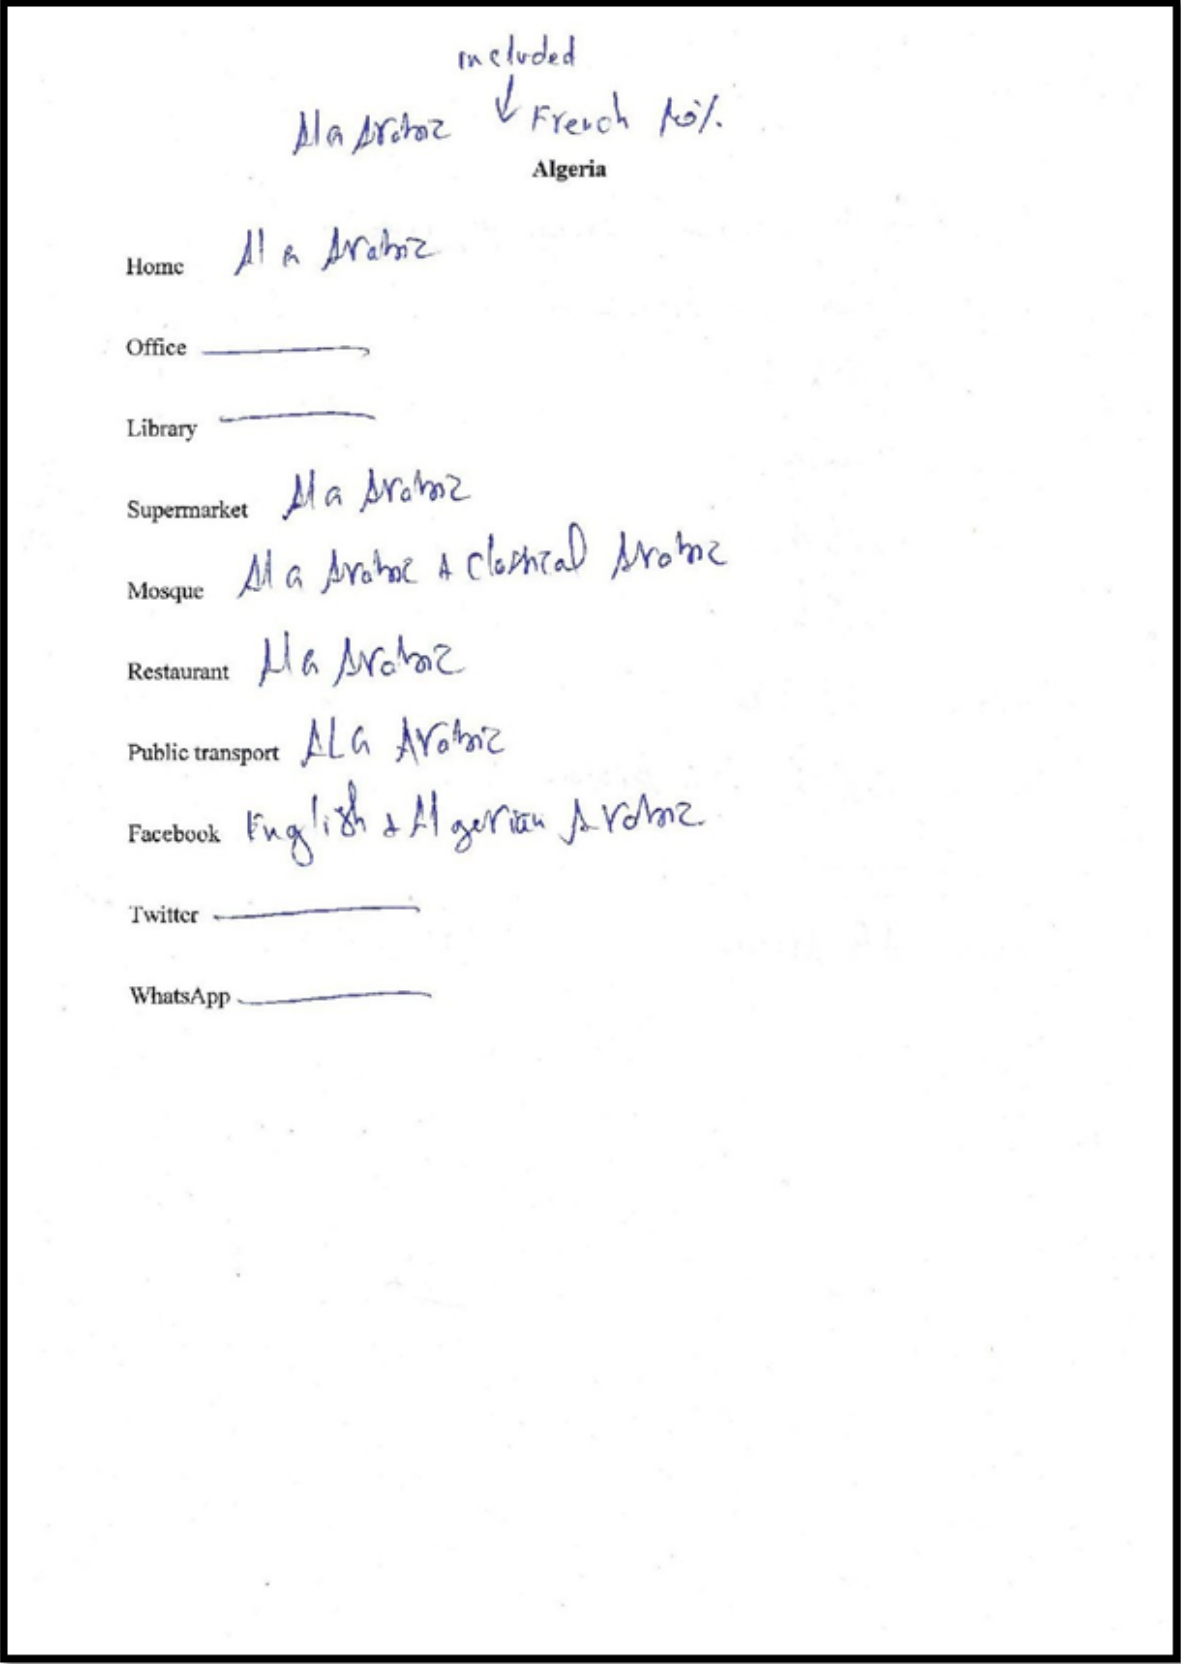 included
Alg Arabic ↓ French 10%
Algeria
Home Alg Arabic
Office ———
Library ———
Supermarket Alg Arabic
Mosque Alg Arabic & Classical Arabic
Restaurant Alg Arabic
Public transport ALG Arabic
Facebook English & Algerian Arabic
Twitter ———
WhatsApp ———